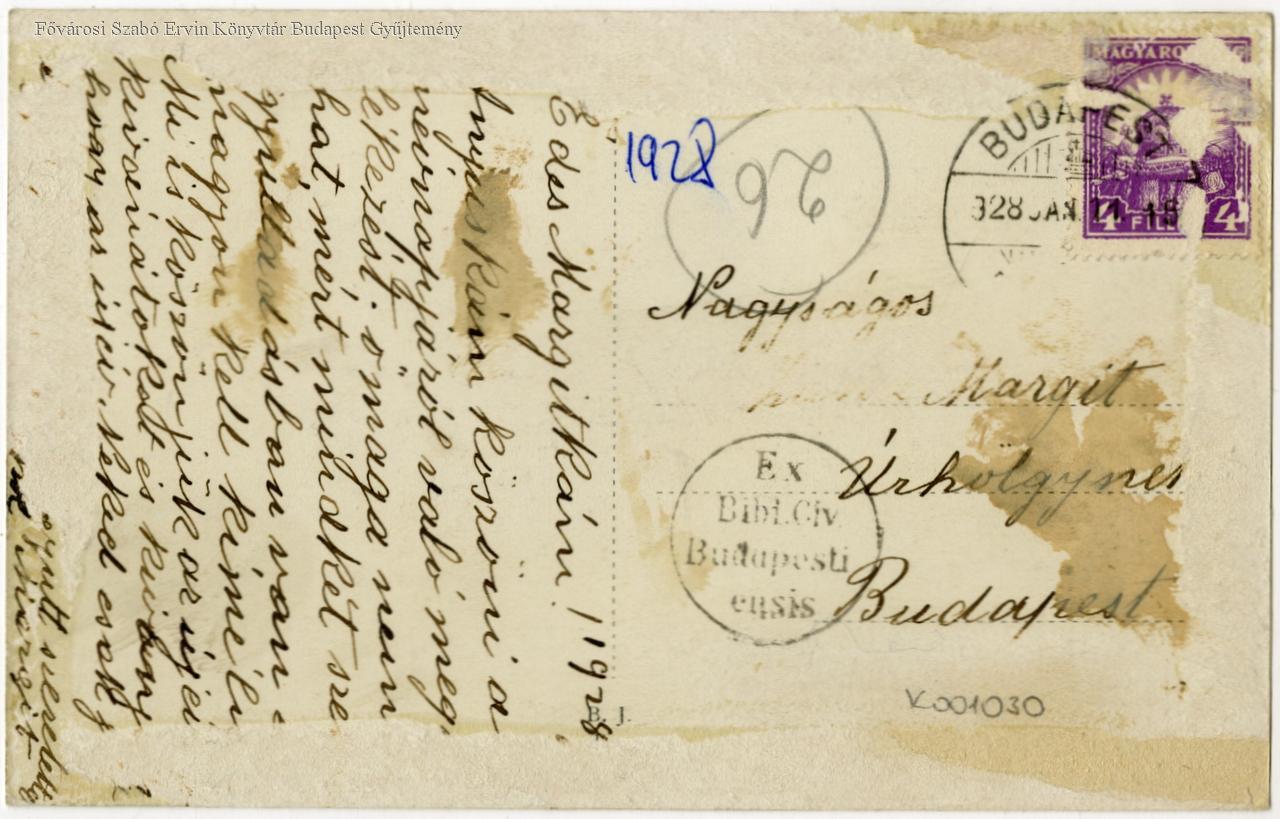 Fővárosi Szabó Ervin Könyvtár Budapest Gyűjtemény
Édes Margitkám! 1928.
Anyuskám köszöni a
nevenapjáról való meg-
lékezést, ő maga nem
írhat mért mindkét sze
gyulladásban van s
nagyon kell kímélni
Mi is köszönjük az újévi
kívánátokat és kívánj
hogy az
szeretett
Margit
1928
26
MAGYARO
BUDAPEST
928 JAN. 11. 15
4 FIL 4
Nagyságos
Margit
Úrhölgynek
Budapest
Ex
Bibl. Civ.
Budapesti
ensis
B. J.
K001030